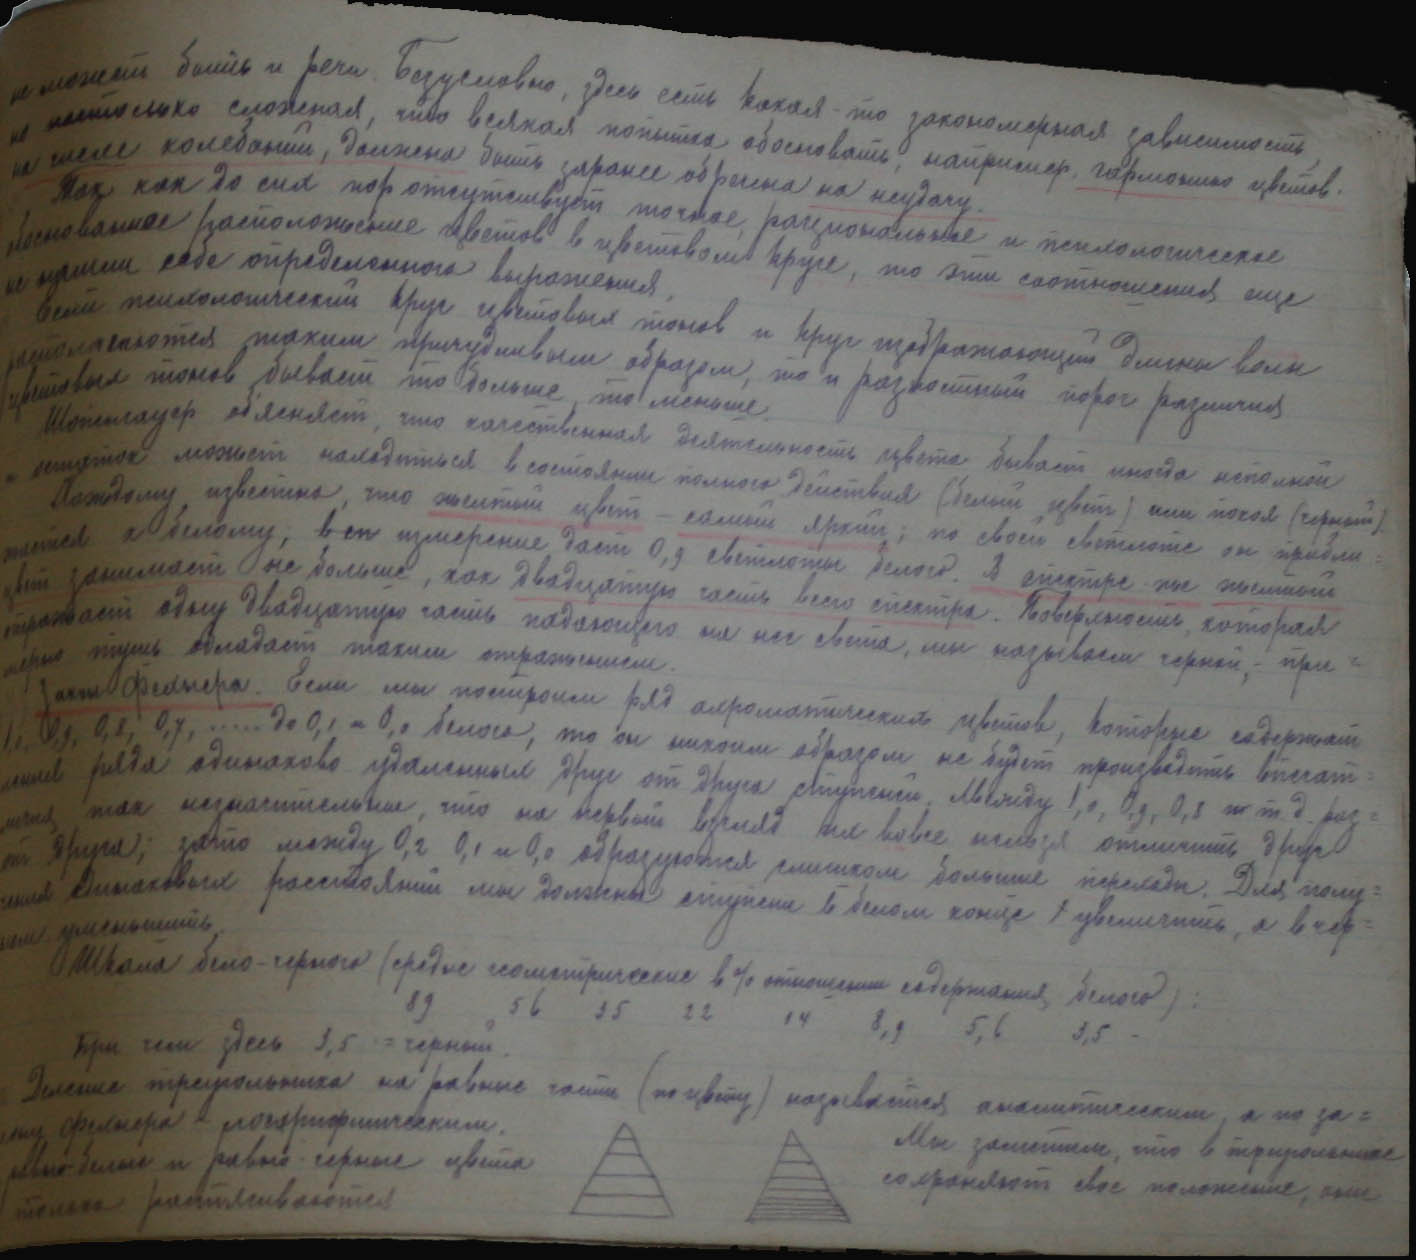 не может быть и речи. Безусловно, здесь есть какая-то закономерная зависимость,
но настолько сложная, что всякая попытка обосновать, например, гармонию цветов
на числе колебаний, должна быть заранее обречена на неудачу.
Так как до сих пор отсутствует точное, рациональное и психологическое
обоснованное расположение цветов в цветовом круге, то эти соотношения еще
не нашли себе определенного выражения.
Если психологический круг цветовых тонов и круг изображающий длины волн
располагаются таким причудливым образом, то и разностный порог различия
цветовых тонов бывает то больше, то меньше.
Шопенгауер объясняет, что качественная деятельность цвета бывает иногда неполной
и остаток может находиться в состоянии полного действия (белый цвет) или покоя (черный).
Каждому известно, что желтый цвет – самый яркий; по своей светлоте он прибли=
жается к белому; измерение дает 0,9 светлоты белого. В спектре же желтый
цвет занимает не больше, как двадцатую часть всего спектра. Поверхность, которая
отражает одну двадцатую часть падающего на нее света, мы называем черной, – при=
мерно тушь обладает таким отражением.
Закон Фехнера. Если мы построим ряд ахроматических цветов, которые содержат
1,0, 0,9, 0,8, 0,7, ...... до 0,1 и 0,0 белого, то он никоим образом не будет производить впечат=
ления ряда одинаково удаленных друг от друга ступеней. Между 1,0, 0,9, 0,8 и т.д. раз=
личия так незначительны, что на первый взгляд их вовсе нельзя отличить друг
от друга; зато между 0,2 0,1 и 0,0 образуются слишком большие переходы. Для полу=
чения одинаковых расстояний мы должны ступени в белом конце увеличить, а в чер=
ном уменьшить.
Шкала бело-черного (средние геометрические в % отношении содержания белого):
89 56 35 22 14 8,9 5,6 3,5 –
При чем здесь 3,5 = черный.
Деление треугольника на равные части (по цвету) называется аналитическим, а по за=
кону Фехнера – логарифмическим.
Мы заметим, что в треугольнике
равно-белые и равно-черные цвета
сохраняют свое положение, они
только растягиваются